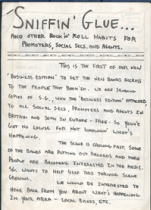 SNIFFIN' GLUE...
AND OTHER ROCK'N'ROLL HABITS FOR
PROMOTERS, SOCIAL SECS, AND AGENTS.
THIS IS THE FIRST OF OUR NEW
"BUSINESS EDITION" TO GET THE NEW BANDS ACROSS
TO THE PEOPLE THAT BOOK 'EM. WE ARE SENDING
COPIES OF S.G., WITH THE "BUSINESS EDITION" ATTACHED
TO ALL SOCIAL SECS, PROMOTERS AND AGENTS IN
BRITAIN AND SOME IN EUROPE - FREE. SO YOU'VE
GOT NO EXCUSE FOR NOT KNOWIN' WHAT'S
HAPPENING.
THE SCENE IS GROWING FAST. SOME
OF THE BANDS ARE PUTTING OUT RECORDS AND MORE
PEOPLE ARE BECOMING INTERESTED IN THE MUSIC.
SO, WANTS TO HELP GET THIS THRIVING SCENE
GROWING.
WE WOULD BE INTERESTED TO
HEAR BACK FROM YOU ABOUT WHAT'S HAPPENING
IN YOUR AREA - LOCAL BANDS, ETC.